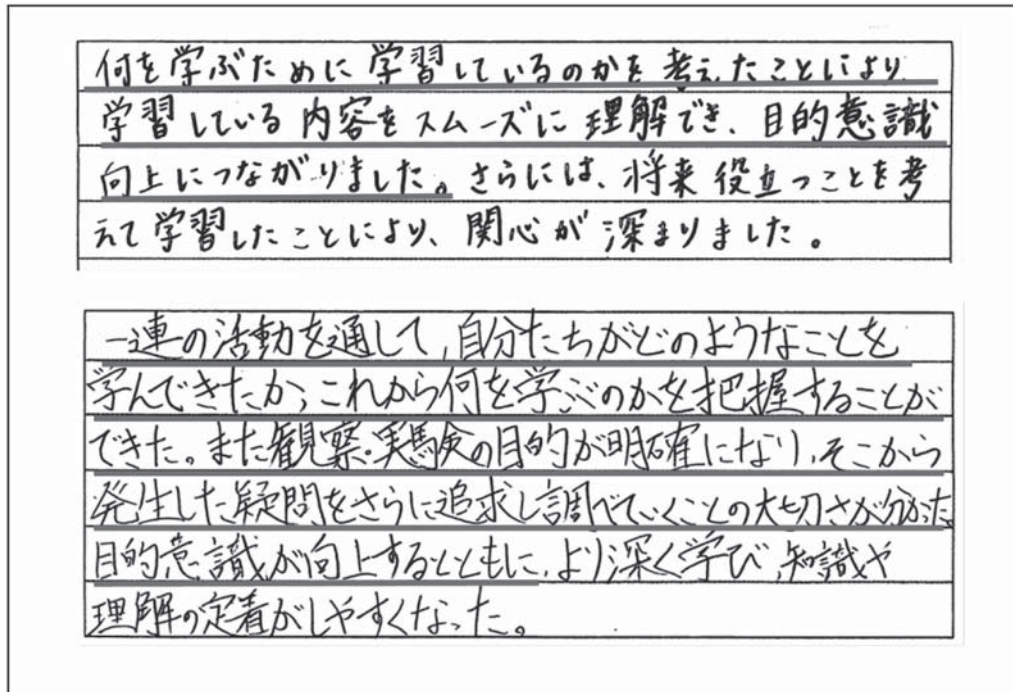 何を学ぶために学習しているのかを考えたことにより
学習している内容をスムーズに理解でき、目的意識
向上につながりました。さらには、将来役立つことを考
えて学習したことにより、関心が深まりました。
一連の活動を通して、自分たちがどのようなことを
学んできたか、これから何を学ぶのかを把握することが
できた。また観察・実験の目的が明確になり、そこから
発生した疑問をさらに追求し調べていくことの大切さが分かった。
目的意識が向上するとともに、より深く学び、知識や
理解の定着がしやすくなった。